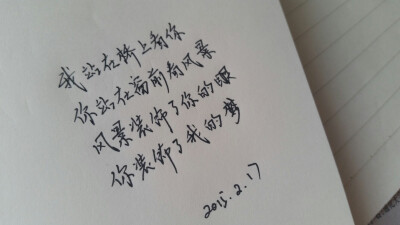 我站在桥上看你
你站在窗前看风景
风景装饰了你的眼
你装饰了我的梦
2015.2.17